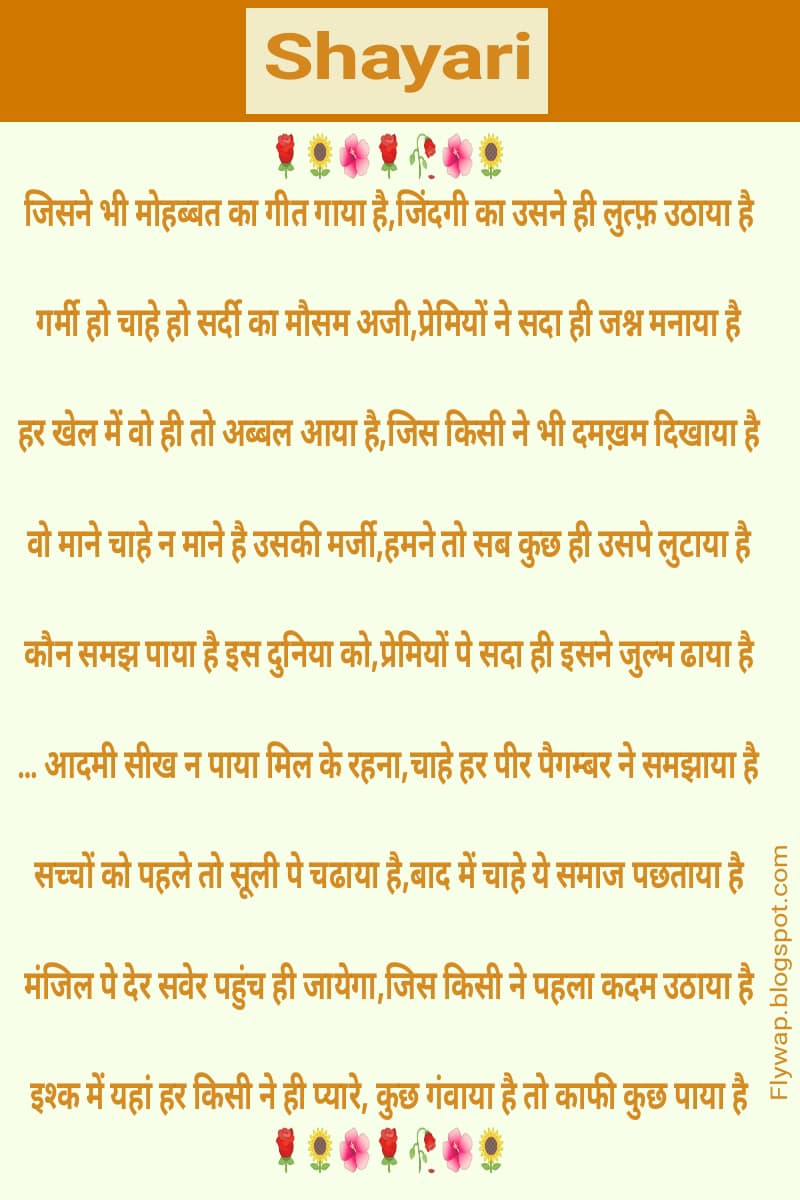 Shayari
जिसने भी मोहब्बत का गीत गाया है,जिंदगी का उसने ही लुत्फ़ उठाया है
गर्मी हो चाहे हो सर्दी का मौसम अजी,प्रेमियों ने सदा ही जश्न मनाया है
हर खेल में वो ही तो अब्बल आया है,जिस किसी ने भी दमख़म दिखाया है
वो माने चाहे न माने है उसकी मर्जी,हमने तो सब कुछ ही उसपे लुटाया है
कौन समझ पाया है इस दुनिया को,प्रेमियों पे सदा ही इसने जुल्म ढाया है
... आदमी सीख न पाया मिल के रहना,चाहे हर पीर पैगम्बर ने समझाया है
सच्चों को पहले तो सूली पे चढाया है,बाद में चाहे ये समाज पछताया है
मंजिल पे देर सवेर पहुंच ही जायेगा,जिस किसी ने पहला कदम उठाया है
इश्क में यहां हर किसी ने ही प्यारे, कुछ गंवाया है तो काफी कुछ पाया है
Flywap.blogspot.com